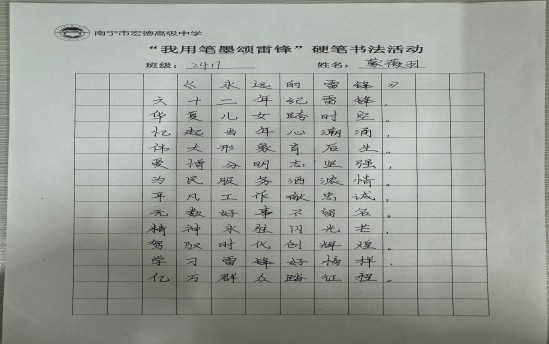 南宁市宏德高级中学
“我用笔墨颂雷锋”硬笔书法活动
班级：2417 姓名：蒙薇羽
《永远的雷锋》
六十二年纪雷锋，
华夏儿女跨时空。
忆起当年心潮涌，
伟大形象育后生。
爱憎分明志坚强，
为民服务洒浓情。
平凡工作献忠诚，
无数好事不留名。
精神永驻闪光芒，
驾驭时代创辉煌。
学习雷锋好榜样，
亿万群众踏征程。